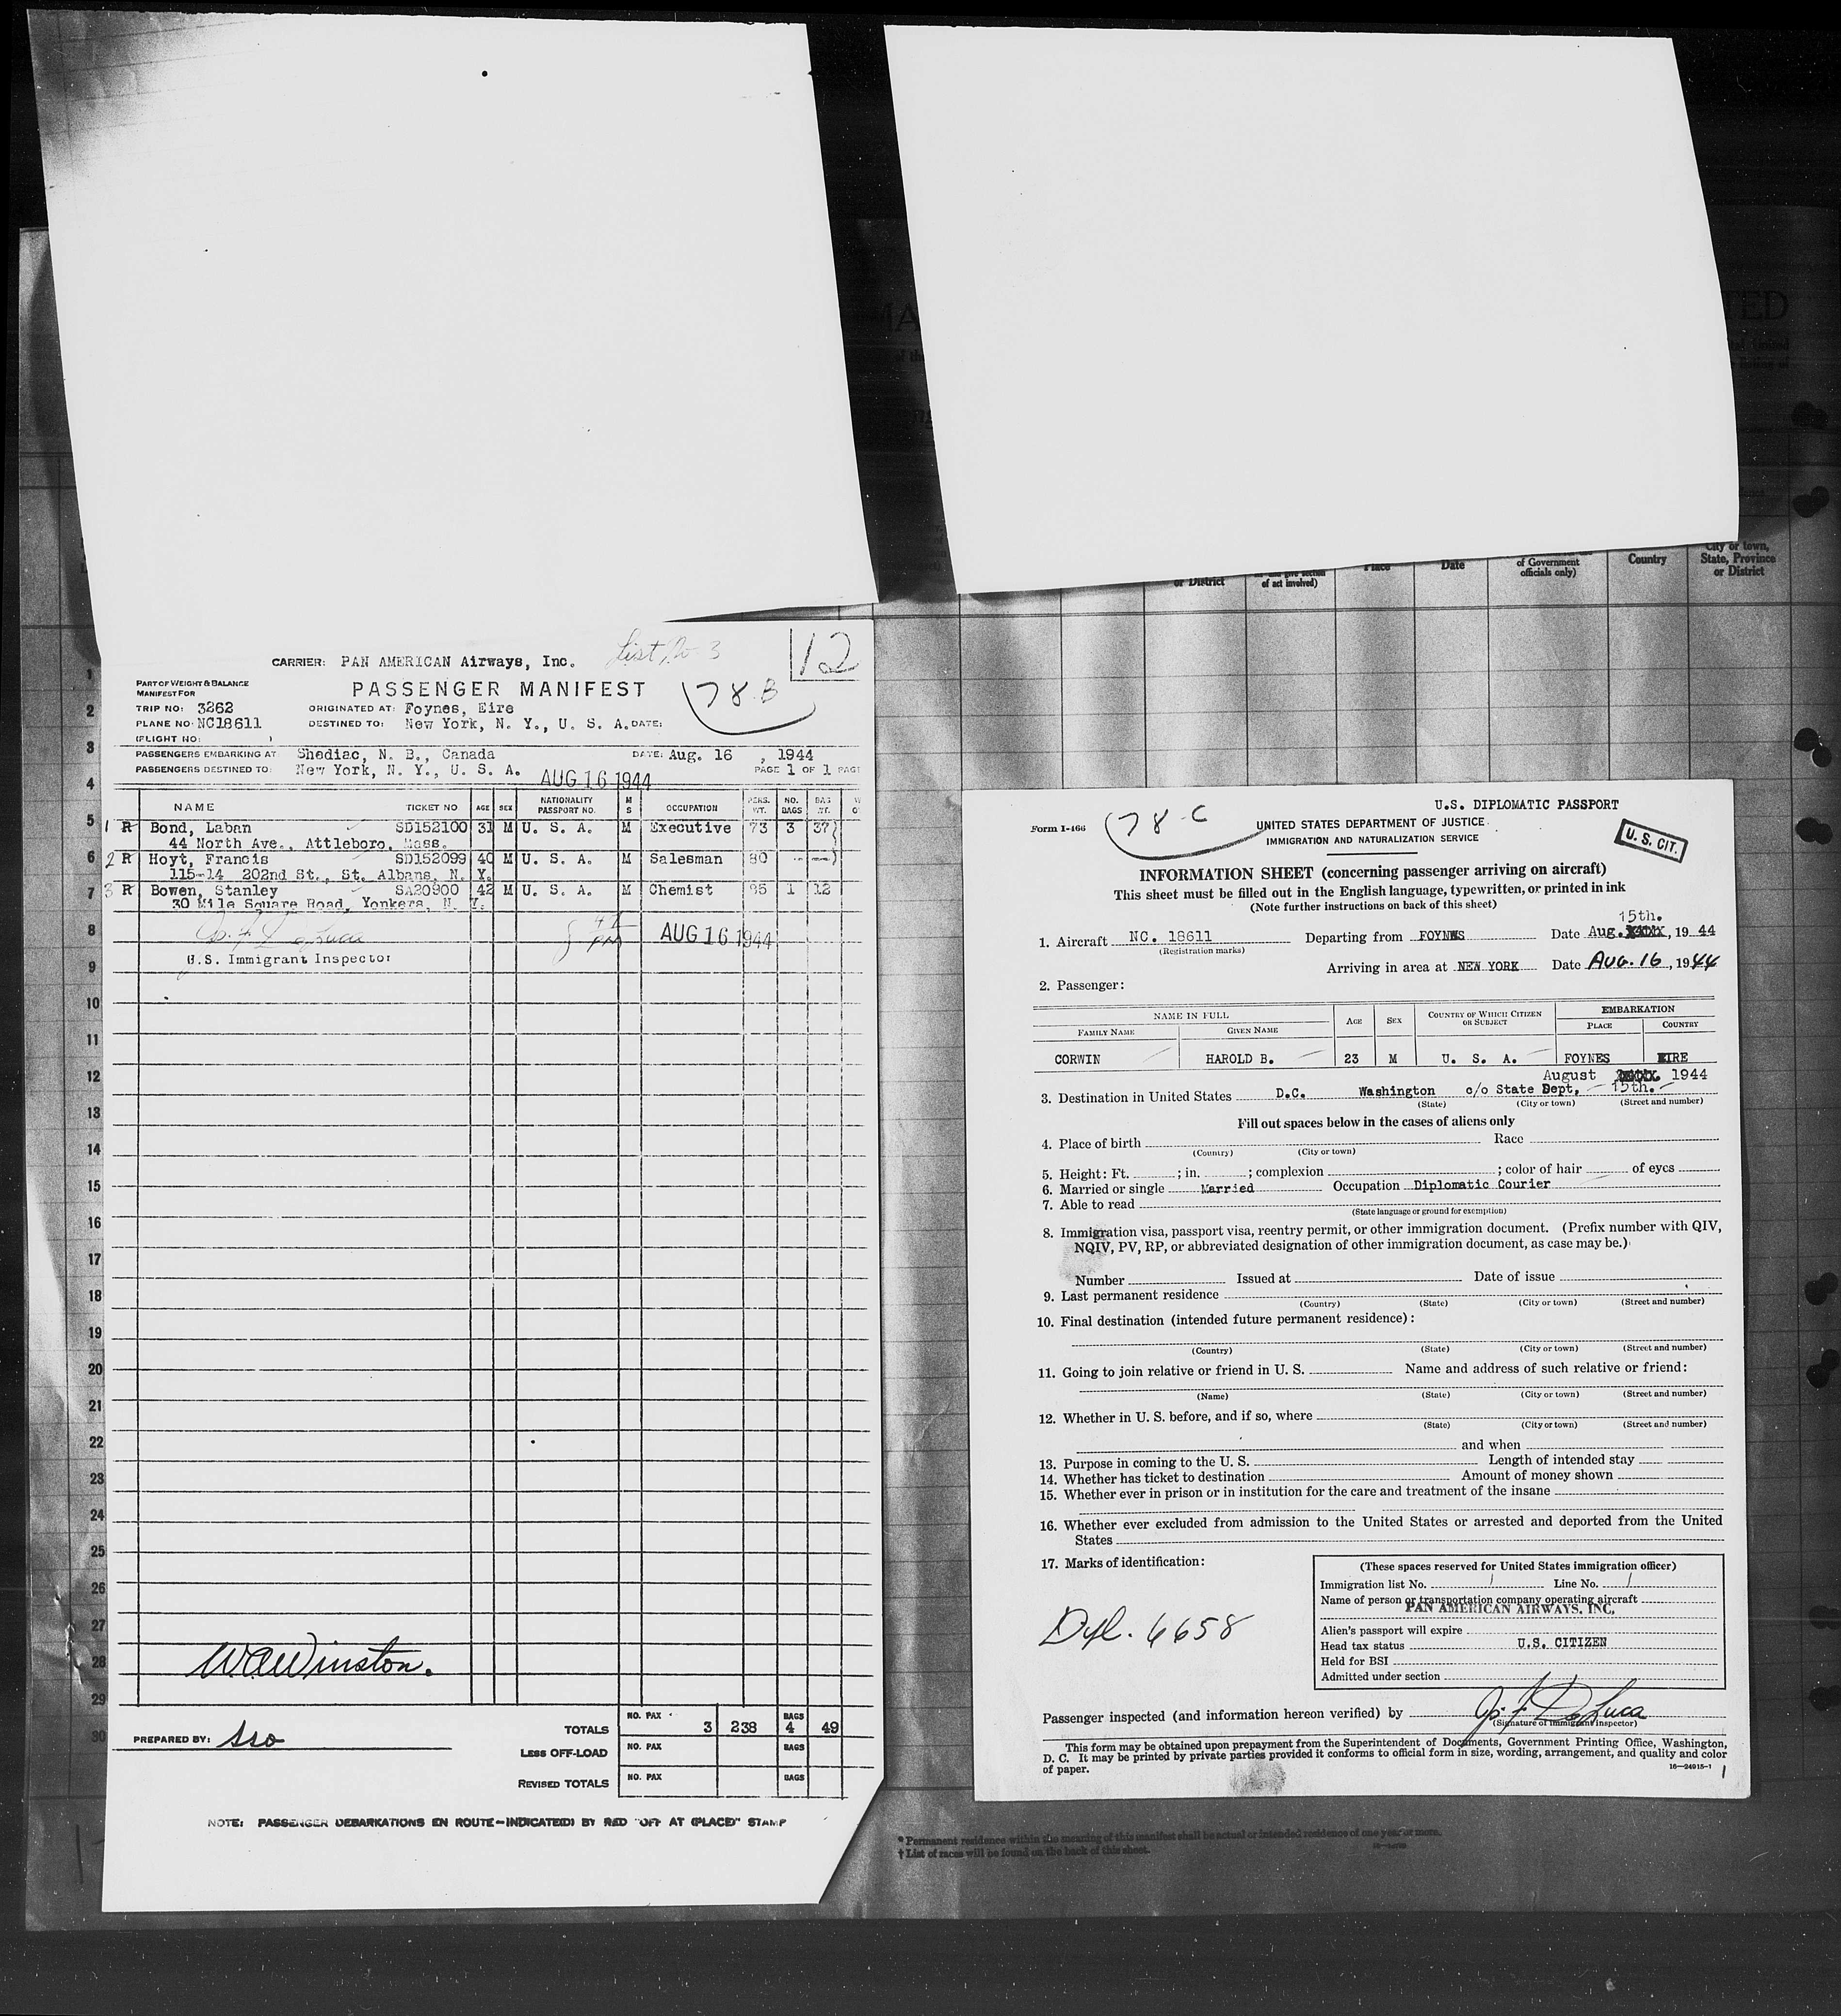 TED
or District
as and give section
of act involved)
Place
Date
of Government
officials only)
Country
City or town,
State, Province
or District
List No 3
12
CARRIER: PAN AMERICAN Airways, Inc.
PART OF WEIGHT & BALANCE
MANIFEST FOR
PASSENGER MANIFEST
78-B
TRIP NO: 3262 ORIGINATED AT: Foynes, Eire
PLANE NO: NC18611 DESTINED TO: New York, N. Y., U. S. A. DATE:
(FLIGHT NO: )
PASSENGERS EMBARKING AT Shediac, N. B., Canada DATE: Aug. 16 , 1944
PASSENGERS DESTINED TO: New York, N. Y., U. S. A. AUG 16 1944 PAGE 1 OF 1 PAGE
NAME TICKET NO AGE SEX NATIONALITY PASSPORT NO. M S OCCUPATION PERS. WT. NO. BAGS BAG WT.
1 R Bond, Laban SD152100 31 M U. S. A. M Executive 73 3 37
44 North Ave., Attleboro, Mass.
2 R Hoyt, Francis SD152099 40 M U. S. A. M Salesman 80 -- --
115-14 202nd St., St. Albans, N. Y.
3 R Bowen, Stanley SA20900 42 M U. S. A. M Chemist 85 1 12
30 Mile Square Road, Yonkers, N. Y.
Jos. F. DeLuca AUG 16 1944
U.S. Immigrant Inspector
1
2
3
4
5
6
7
8
9
10
11
12
13
14
15
16
17
18
19
20
21
22
23
24
25
26
27
28
29
30
WAWinston.
PREPARED BY: sso
TOTALS NO. PAX 3 238 BAGS 4 49
LESS OFF-LOAD NO. PAX BAGS
REVISED TOTALS NO. PAX BAGS
NOTE: PASSENGER DEBARKATIONS EN ROUTE—INDICATE(D) BY RED "OFF AT (PLACE)" STAMP
U.S. DIPLOMATIC PASSPORT
Form I-466
78-C
UNITED STATES DEPARTMENT OF JUSTICE
IMMIGRATION AND NATURALIZATION SERVICE
U. S. CIT.
INFORMATION SHEET (concerning passenger arriving on aircraft)
This sheet must be filled out in the English language, typewritten, or printed in ink
(Note further instructions on back of this sheet)
15th.
1. Aircraft NC. 18611 Departing from FOYNES Date Aug. , 19 44
(Registration marks)
Arriving in area at NEW YORK Date AUG. 16 , 1944
2. Passenger:
NAME IN FULL AGE SEX COUNTRY OF WHICH CITIZEN OR SUBJECT EMBARKATION
FAMILY NAME GIVEN NAME PLACE COUNTRY
CORWIN HAROLD B. 23 M U. S. A. FOYNES EIRE
August 1944
3. Destination in United States D.C. Washington c/o State Dept, 15th.
(State) (City or town) (Street and number)
Fill out spaces below in the cases of aliens only
4. Place of birth Race
(Country) (City or town)
5. Height: Ft. ; in. ; complexion ; color of hair of eyes
6. Married or single Married Occupation Diplomatic Courier
7. Able to read
(State language or ground for exemption)
8. Immigration visa, passport visa, reentry permit, or other immigration document. (Prefix number with QIV,
NQIV, PV, RP, or abbreviated designation of other immigration document, as case may be.)
Number Issued at Date of issue
9. Last permanent residence
(Country) (State) (City or town) (Street and number)
10. Final destination (intended future permanent residence):
(Country) (State) (City or town) (Street and number)
11. Going to join relative or friend in U. S. Name and address of such relative or friend:
(Name) (State) (City or town) (Street and number)
12. Whether in U. S. before, and if so, where
(State) (City or town) (Street and number)
and when
13. Purpose in coming to the U. S. Length of intended stay
14. Whether has ticket to destination Amount of money shown
15. Whether ever in prison or in institution for the care and treatment of the insane
16. Whether ever excluded from admission to the United States or arrested and deported from the United
States
17. Marks of identification:
Dpl. 6658
(These spaces reserved for United States immigration officer)
Immigration list No. 1 Line No. 1
Name of person or transportation company operating aircraft
PAN AMERICAN AIRWAYS, INC,
Alien's passport will expire
Head tax status U.S. CITIZEN
Held for BSI
Admitted under section
Passenger inspected (and information hereon verified) by Jos. F. DeLuca
(Signature of immigrant inspector)
This form may be obtained upon prepayment from the Superintendent of Documents, Government Printing Office, Washington,
D. C. It may be printed by private parties provided it conforms to official form in size, wording, arrangement, and quality and color
of paper.
16—24915-1
1
* Permanent residence within the meaning of this manifest shall be actual or intended residence of one year or more.
† List of races will be found on the back of this sheet.